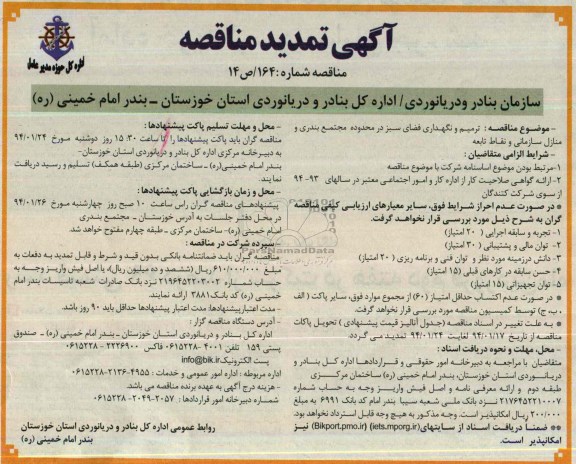 آگهی تمدید مناقصه
مناقصه شماره: ۱۶۴/ص۱۴
اداره کل حوزه مدیر عامل
سازمان بنادر ودریانوردی/ اداره کل بنادر و دریانوردی استان خوزستان ـ بندر امام خمینی (ره)
– موضـوع مناقصـه : ترمیـم و نگهـداری فضای سبز در محدوده مجتمع بندری و
منازل سازمانی و نقـاط تابعه
– شرایط الزامی متقاضیان :
۱-مرتبط بودن موضوع اساسنامه شرکت با موضوع مناقصه
۲-ارائه گواهی صلاحیت کار از اداره کار و امور اجتماعی معتبر در سالهای ۹۴-۹۳
از سوی شرکت کنندگان
* در صورت عدم احراز شرایط فوق، سایر معیارهای ارزیابی کیفی مناقصه
گران به شرح ذیل مورد بررسی قرار نخواهد گرفت.
۱- تجربه و سابقه اجرایی ( ۲۰ امتیاز)
۲- توان مالی و پشتیبانی ( ۳۰ امتیاز)
۳- دانش درزمینه مورد نظر و توان فنی و برنامه ریزی ( ۲۰ امتیاز)
۴- حسن سابقه در کارهای قبلی (۱۵ امتیاز)
۵- توان تجهیزاتی (۱۵ امتیاز)
* در صورت عدم اکتساب حداقل امتیاز (۶۰) از مجموع موارد فوق، سایر پاکت ( الف
، ب، ج) توسط کمیسیون مناقصه مورد بررسی قرار نخواهد گرفت.
* به علت تغییر در اسناد مناقصه (جدول آنالیز قیمت پیشنهادی ) تحویل پاکات
مناقصه از تاریخ ۹۴/۰۱/۱۷ لغایت ۹۴/۰۱/۲۴ تمدید می گردد
– محل، مهلت و نحوه دریافت اسناد :
متقاضیان با مراجعه به دبیرخانه امور حقوقی و قراردادها اداره کل بنادر و
دریانوردی استان خوزستان، بندر امام خمینی (ره) ساختمان مرکزی
طبقه دوم و ارائه معرفی نامه و اصل فیش واریز وجه به حساب شماره
۲۱۷۶۴۵۲۲۱۰۰۰۷ نزد بانک ملی شعبه سیبا بندر امام کد بانک ۶۹۹۱ به مبلغ
۲۰۰/۰۰۰ ریال امکانپذیر است. وجه مذکور به هیچ وجه قابل استرداد نخواهد بود
* ضمناً دریافت اسناد از سایتهای(iets.mporg.ir) (Bikport.pmo.ir) نیز
امکانپذیر است.
– محل و مهلت تسلیم پاکت پیشنهادها :
مناقصه گران باید پاکت پیشنهادها را تا ساعت ۱۵:۳۰ روز دوشنبه مورخ ۹۴/۰۱/۲۴
به دبیرخـانه مرکزی اداره کل بنـادر و دریانوردی استان خوزستان-
بندر امام خمینی(ره) – ساختمان مرکزی (طبقه همکف) تسلیم و رسید دریافت
نمایند.
– محل و زمان بازگشایی پاکت پیشنهادها:
پیشنهادهـای مناقصه گـران راس ساعت ۱۰ صبح روز چهارشنبه مورخ ۹۴/۰۱/۲۶
در محل دفتـر جلسات به آدرس خوزستـان – مجتمـع بنـدری
امام خمینی (ره)- ساختمان مرکزی – طبقه چهارم مفتوح خواهد شد
– سپرده شرکت در مناقصه :
مناقصه گران باید ضمانتنامه بانکی بـدون قیـد و شرط و قابل تمدید به دفعات به
مبلغ ۶۱۰/۰۰۰/۰۰۰ ریال (ششصد و ده میلیون ریال)، یا اصل فیش واریز وجـه به
حساب شماره ۲۱۹۶۴۵۲۲۰۳۰۰۲ نزد بانک صادرات شعبه تاسیسات بندر امام
خمینی (ره) کد بانک ۳۸۸۱ ارائه نمایند.
– مدت اعتبارپیشنهادها مدت اعتبار پیشنهادها حداقل باید ۹۰ روز باشد.
– آدرس دستگاه مناقصه گزار :
اداره کل بنادر و دریانوردی استان خوزستان ـ بندر امام خمینی (ره) – صندوق
پستی ۱۵۹ تلفن ۴۰۰۱-۰۶۱۵۲۲۸ فاکس ۲۲۲۶۹۰۰-۰۶۱۵۲۲۸
پست الکترونیکinfo@bik.ir
اداره مربوطه : اداره امور عمومی و خدمات : ۴۹۵۵-۲۱۳۶-۰۶۱۵۲۲۸
– هزینه درج آگهی به عهده برنده مناقصه می باشد.
شماره دبیرخانه امور قراردادها : ۲۰۵۷-۲۰۴۹-۰۶۱۵۲۲۸
روابط عمومی اداره کل بنادر و دریانوردی استان خوزستان
بندر امام خمینی (ره)
ParsNamadData